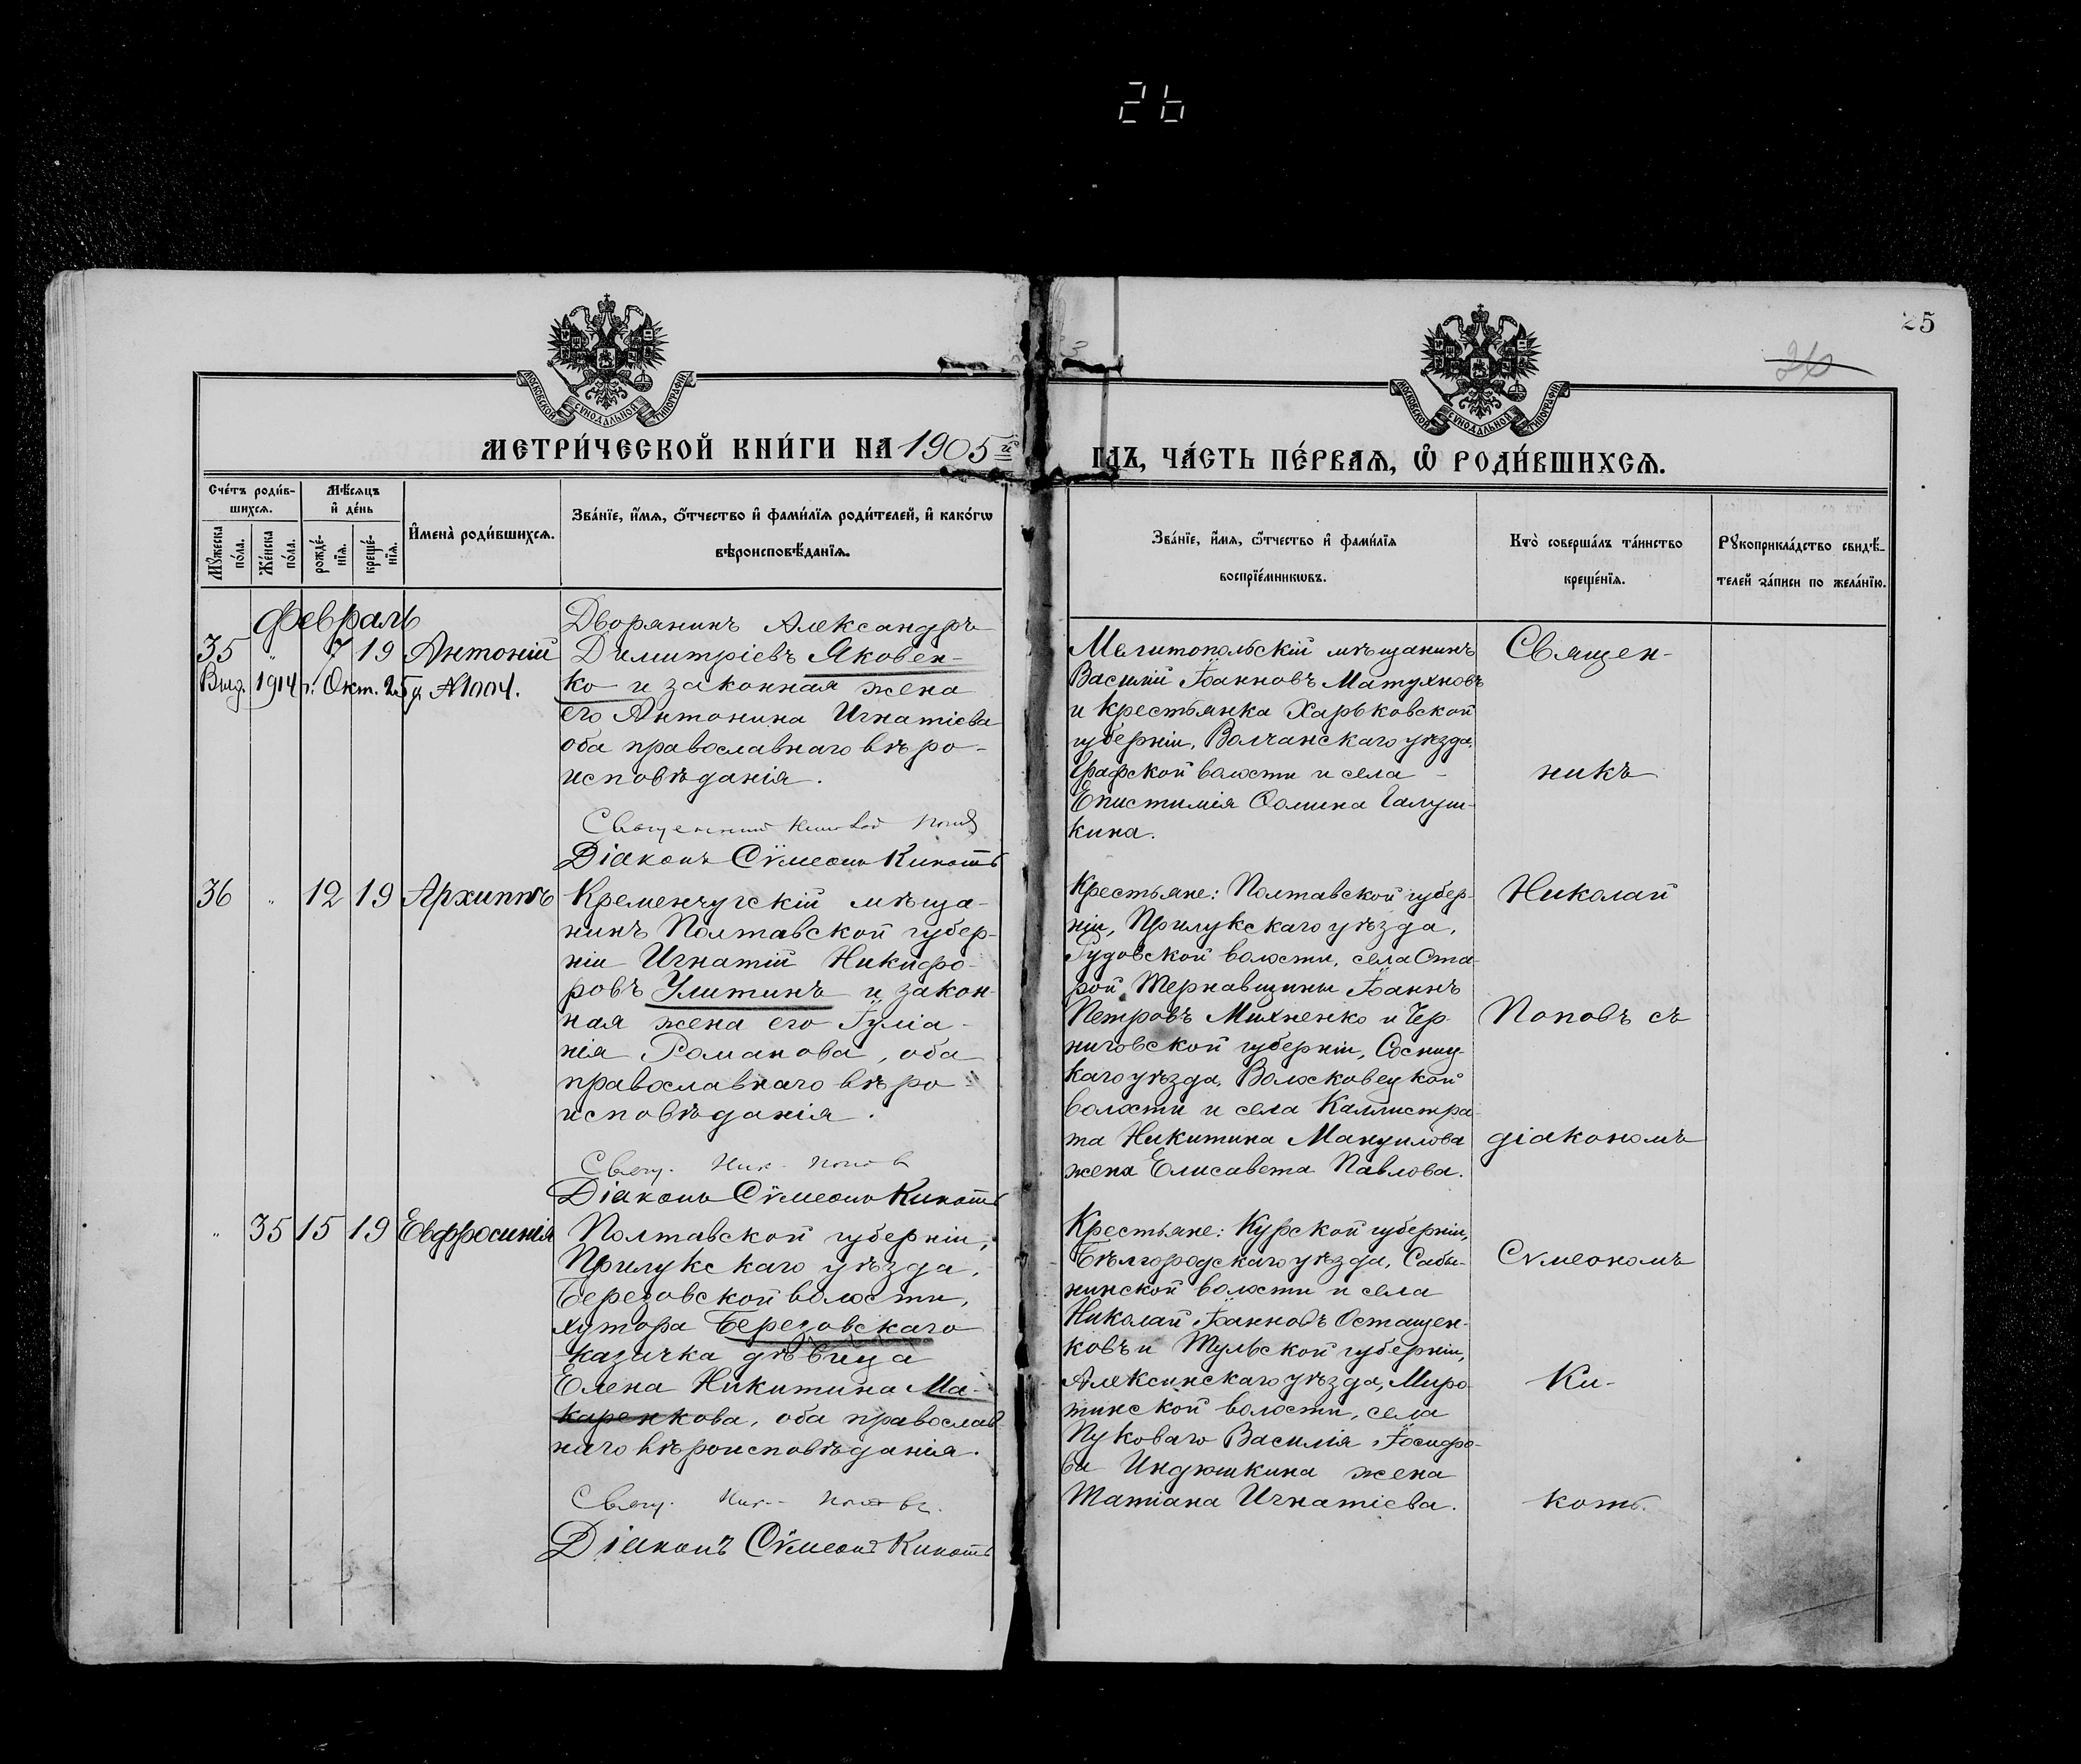 26
25
26
МОСКОВСКОЙ СѴНОДАЛЬНОЙ ТИПОГРАФІИ
МОСКОВСКОЙ СѴНОДАЛЬНОЙ ТИПОГРАФІИ
МЕТРИ́ЧЕСКОЙ КНИ́ГИ НА 1905й
ГДЪ, ЧА́СТЬ ПЕ́РВАѦ, Ѡ҆ РОДИ́ВШИХСѦ.
Сче́тъ роди́в-
шихсѧ.
Мѣ́сѧцъ
и҆ де́нь
И҆мена̀ роди́вшихсѧ.
Зва́нїе, и҆́мѧ, ѻ҆́тчество и҆ фами́лїѧ роди́телей, и҆ како́гѡ
вѣроисповѣ́данїѧ.
Мꙋ́жеска
по́ла.
Же́нска
по́ла.
рожде́-
нїѧ.
креще́-
нїѧ.
Зва́нїе, и҆́мѧ, ѻ҆́тчество и҆ фами́лїѧ
воспрїе́мникѡвъ.
Кто̀ соверша́лъ та́инство
креще́нїѧ.
Рꙋкоприкла́дство свидѣ́-
телей за́писи по жела́нїю.
Февраль
35 " 7 19 Антоній
Выд. 1914 г. Окт. 25 д. №1004.
Дворянинъ Александръ
Димитріевъ Яковен-
ко и законная жена
его Антонина Игнатіева
оба православнаго вѣро-
исповѣданія.
Священникъ Николай Поповъ
Діаконъ Сѵмеонъ Кикоть
Мелитопольскій мѣщанинъ
Василій Іоанновъ Матухновъ
и крестьянка Харьковской
губерніи, Волчанскаго уѣзда,
Графской волости и села -
Епистимія Ѳомина Галуш-
кина.
Священ-
никъ
36 " 12 19 Архиппъ
Кременчугскій мѣща-
нинъ Полтавской губер-
ніи Игнатій Никифо-
ровъ Улитинъ и закон-
ная жена его Іуліа-
нія Романова, оба
православнаго вѣро-
исповѣданія.
Свящ. Ник. Поповъ
Діаконъ Сѵмеонъ Кикоть
Крестьяне: Полтавской губер-
ніи, Прилукскаго уѣзда,
Гудовской волости, села Ста-
рой Тернавщины Іоаннъ
Петровъ Михненко и Чер-
ниговской губерніи, Сосниц-
каго уѣзда, Волосковецкой
волости и села Каллистра-
та Никитина Мануилова
жена Елисавета Павлова.
Николай
Поповъ съ
діакономъ
" 35 15 19 Евфросинія
Полтавской губерніи,
Прилукскаго уѣзда,
Березовской волости,
хутора Березовскаго
казачка дѣвица
Елена Никитина Ма-
каренкова, оба православ-
наго вѣроисповѣданія.
Свящ. Ник. Поповъ.
Діаконъ Сѵмеонъ Кикоть
Крестьяне: Курской губерніи,
Бѣлгородскаго уѣзда, Сабы-
нинской волости и села
Николай Іоанновъ Остащен-
ковъ и Тульской губерніи,
Алексинскаго уѣзда, Миро-
тинской волости, села
Пуковаго Василія Іосифо-
ва Индюшкина жена
Татіана Игнатіева.
Сѵмеономъ
Ки-
коть.